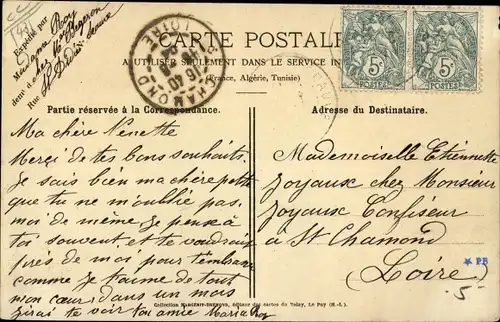 Expédié par
Madame Roy
CARTE POSTALE
A UTILISER SEULEMENT DANS LE SERVICE IN
(France, Algérie, Tunisie)
Partie réservée à la Correspondance.
Adresse du Destinataire.
5c
POSTES
5c
POSTES
CHAMOND
LOIRE
Ma chère Nenette
Merçi de tes bons souhaits.
Je sais bien ma chère petite
que tu ne m'oublie pas.
moi de même je pense à
toi souvent, et te voudrais
près de moi pour t'embrasser
comme je t'aime de tout
mon cœur, dans un mois
j'irai te voir ton amie Maria Roy
Mademoiselle Etiennette
Joyaux chez Monsieur
Joyaux Confiseur
à St Chamond
Loire
* PB
5
Collection éditeur des cartes du Velay, Le Puy (H.-L.)